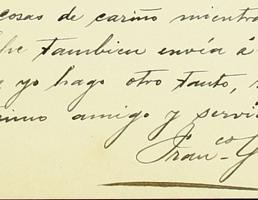 cosas de cariño mientra
che tambien envía á
yo hago otro tanto,
amigo y servi
Fran.co G